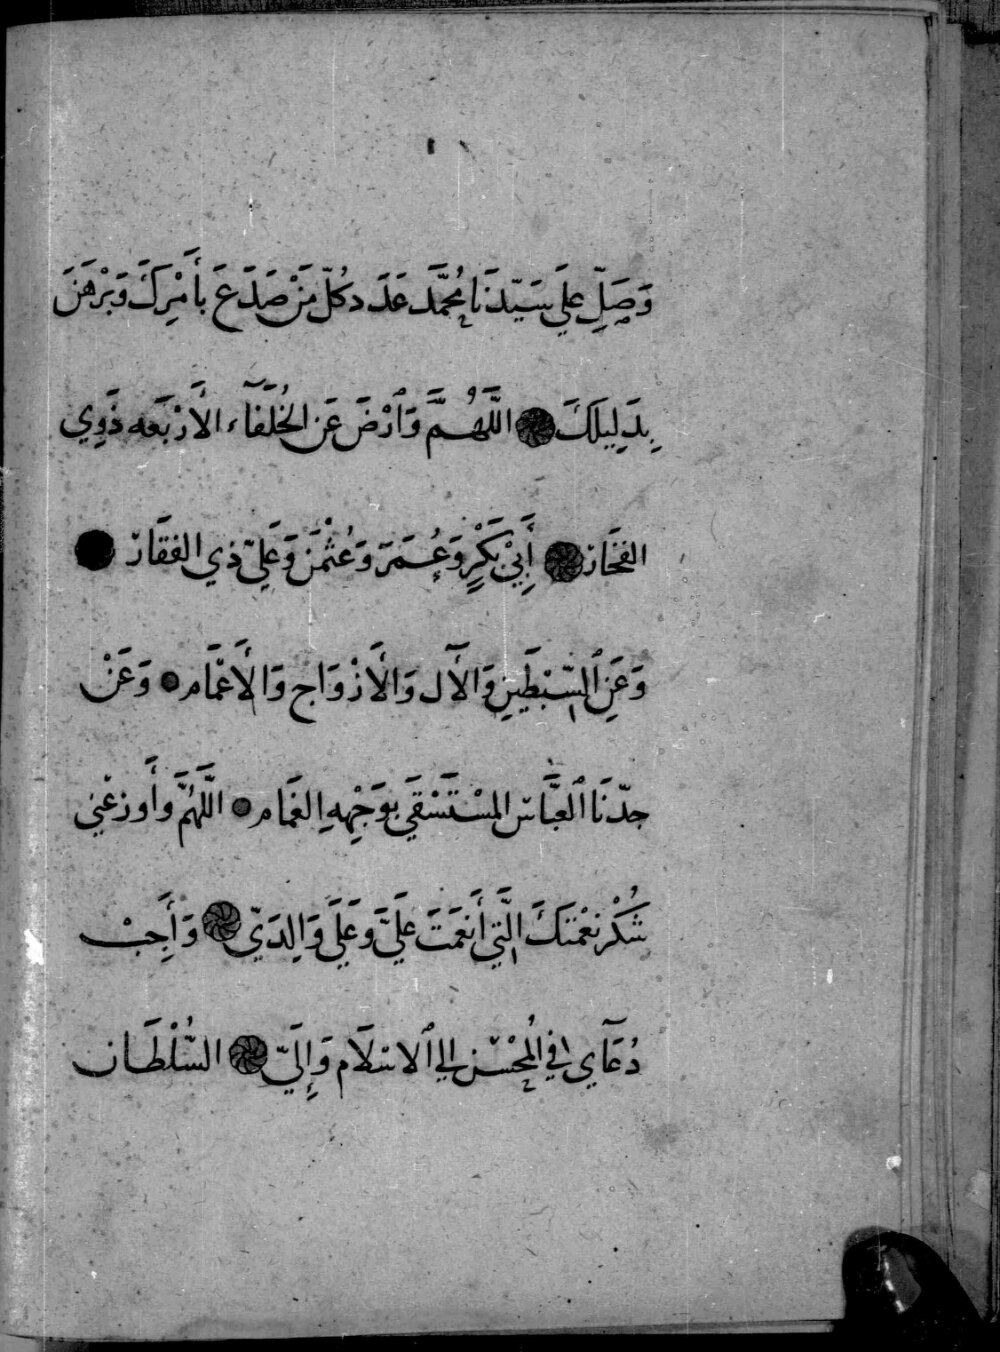 وَصَلِّ عَلَي سَيّدنَا مُحَمَّد عَدَد كُلّ مَنْ صَدَعَ بأَمْرِكَ وَبَرْهَنَ
بِدَلِيلَكَ اللَّهُمَّ وَٱرْضَ عَن الخُلَفَآء الأَرْبَعَه ذَوِي
الفخَار أَبِيْ بَكْرٍ وَعُمَرَ وَعُثْمَنَ وَعَلِيّ ذِي الفقَار
وَعَنِ ٱلسّبْطَيْنِ وَالآل وَالأَزْوَاج وَالأَعْمَام وَعَنْ
جدّنَا ٱلعَبَّاس المسْتَسْقَي بوَجْهِهِ الغَمَام اللَّهُمَّ وأَوزعْني
شُكْر نعْمَتكَ الَّتي أَنعَمَتَ عَلَيَّ وَعَلَي وَالِدَيّ وَأَجِبْ
دُعَآي في المُحْسْن الي ٱلاسْلَام وَإِلَيّ السُّلْطَان